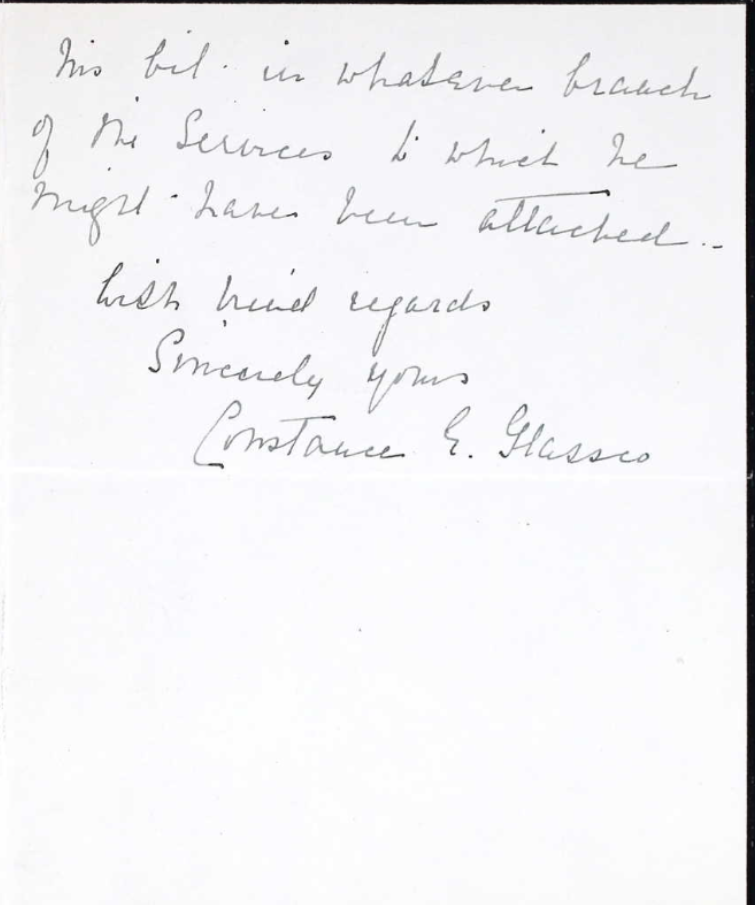 his bit in whatever branch
of the Services to which he
might have been attached -
With kind regards
Sincerely yours
Constance E. Glassco